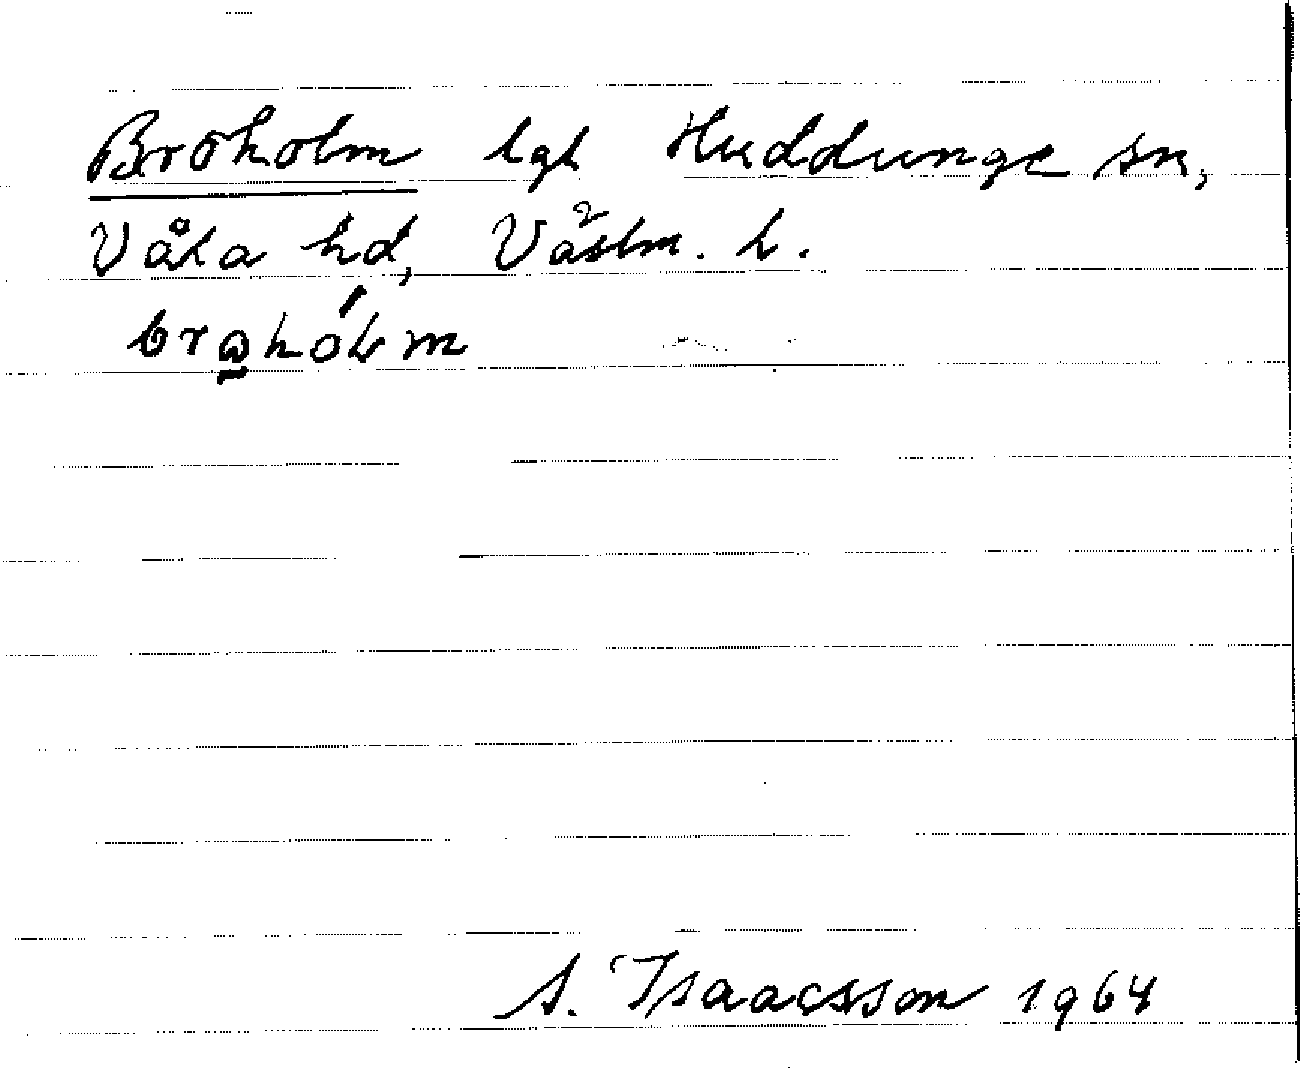 Broholm lgh Huddunge sn,
Våla hd, Västm. l.
A. Isaacsson 1964